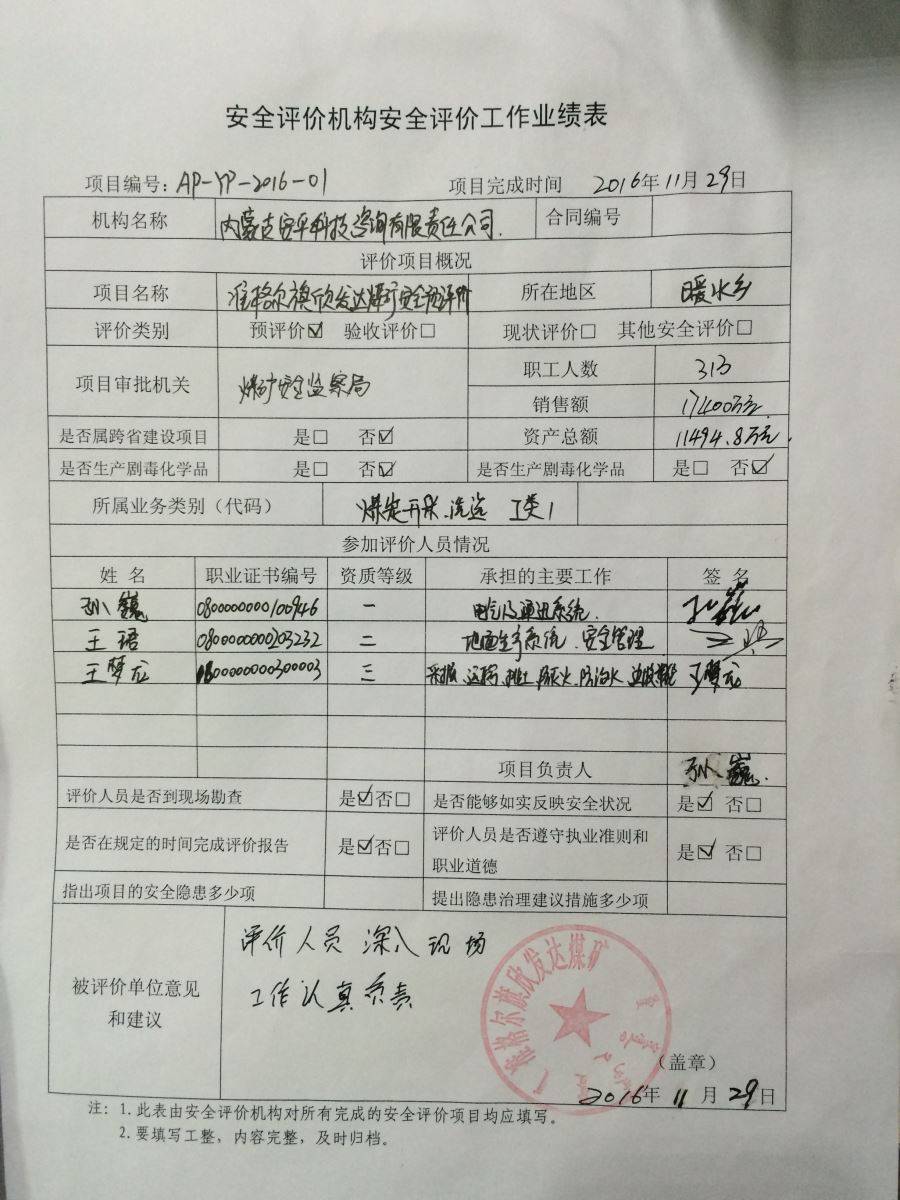 安全评价机构安全评价工作业绩表
项目编号: AP-YP-2016-01 项目完成时间 2016年11月29日
机构名称 内蒙古安平科技咨询有限责任公司. 合同编号
评价项目概况
项目名称 准格尔旗欣发达煤矿安全预评价 所在地区 暖水乡
评价类别 预评价☑ 验收评价□ 现状评价□ 其他安全评价□
项目审批机关 煤矿安全监察局 职工人数 313
销售额 17400万元
是否属跨省建设项目 是□ 否☑ 资产总额 11494.8万元.
是否生产剧毒化学品 是□ 否☑ 是否生产剧毒化学品 是□ 否☑
所属业务类别（代码） 煤炭开采.洗选 I类1
参加评价人员情况
姓 名 职业证书编号 资质等级 承担的主要工作 签 名
孙巍 0800000000100946 一 电气及通讯系统. 孙巍
王珺 0800000000203232 二 地面生产系统 安全管理
王梦龙 0800000000300003 三 采掘.运输.排土.防灭火.防治水 王梦龙
项目负责人 孙巍.
评价人员是否到现场勘查 是☑否□ 是否能够如实反映安全状况 是☑ 否□
是否在规定的时间完成评价报告 是☑否□ 评价人员是否遵守执业准则和
职业道德 是☑ 否□
指出项目的安全隐患多少项 提出隐患治理建议措施多少项
被评价单位意见
和建议
评价人员 深入现场
工作认真负责
准格尔旗欣发达煤矿
（盖章）
2016年 11月29日
注: 1.此表由安全评价机构对所有完成的安全评价项目均应填写。
2.要填写工整，内容完整，及时归档。